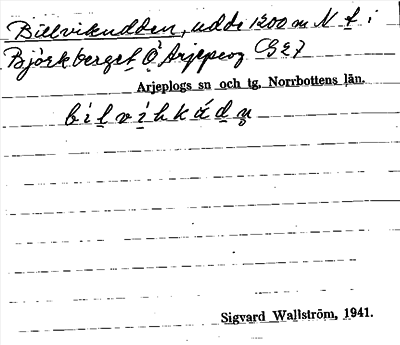 Billvikudden, udde 1200 m N t i
Björkberget Ö Arjeplog GE7
Arjeplogs sn och tg, Norrbottens län.
bilvihkádn
Sigvard Wallström, 1941.